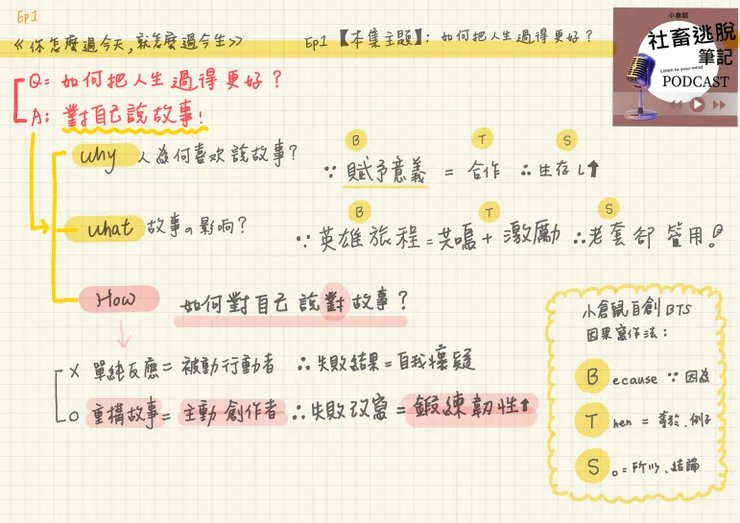 Ep1
《你怎麼過今天,就怎麼過今生》
Ep1【本集主題】: 如何把人生過得更好?
小倉鼠
社畜逃脫
筆記
Listen to your mind
PODCAST
Q= 如何把人生過得更好?
A: 對自己說故事!
why 人為何喜欢說故事?
B T S
∵ 賦予意義 = 合作 ∴生存率↑
what 故事の影响?
B T S
∵ 英雄旅程=共鳴+激勵 ∴老套卻管用。
How 如何對自己說對故事?
X 單純反應= 被動行動者 ∴失敗結果=自我懷疑
O 重構故事= 主動創作者 ∴失敗改寫=鍛練韌性↑
小倉鼠自創BTS
因果寫作法:
Because ∵因為
Then = 等於、例子
So = 所以、結論